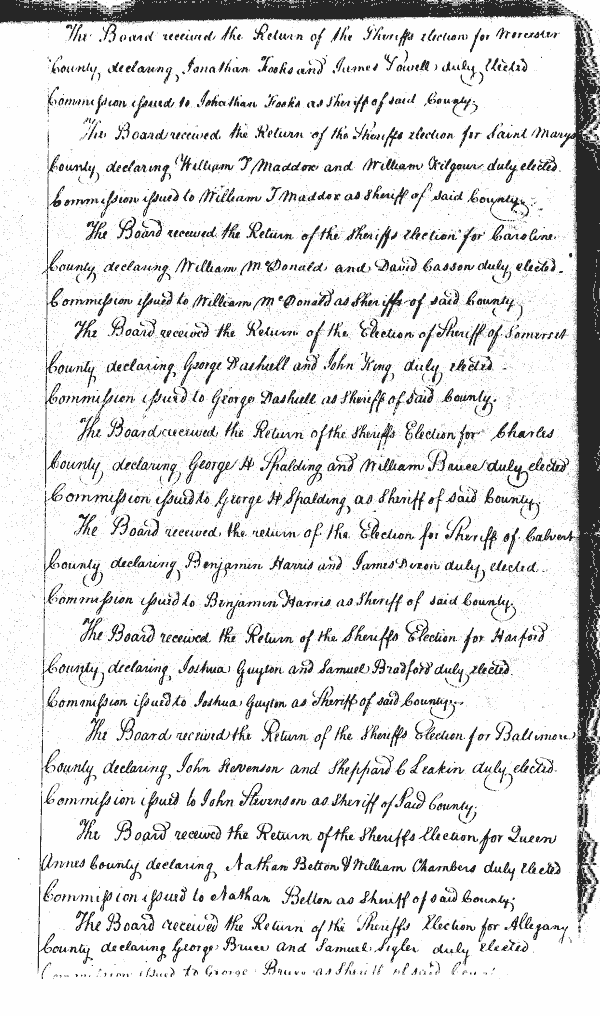 The Board received the Return of the Sheriffs election for Worcester
County, declaring, Jonathan Fooks and James Powell duly Elected
Commission issued to Johathan Fooks as Sheriff of said County,
The Board received the Return of the Sheriffs election for Saint Marys
County, declaring William T Maddox and William Kilgour duly elected
Commission issued to William T Maddox as Sheriff of said County,
The Board received the Return of the Sheriffs Election for Caroline
County declaring William McDonald and David Casson duly, elected.
Commission issued to William McDonald as Sheriffs of said County,
The Board received the Return of the Election of Sheriff of Somerset
County declaring George Dashiell and John King duly elected
Commission issued to George Dashiell as Sheriff of said County.
The Board received the Return of the Sheriffs Election for Charles
County, declaring, George H Spalding and William Bauce duly elected
Commission issued to George H Spalding as Sheriff of said County,
The Board received the return of the Election for Sheriff of Calvert
County declaring, Benjamin Harris and James Dixon duly, elected.
Commission issued to Benjamin Harris as Sheriff of said County.
The Board received the Return of the Sheriffs Election for Harford
County, declaring, Joshua Guyton and Samuel Bradford duly elected.
Commission issued to Joshua Guyton as Sheriff of said County.
The Board received the Return of the Sheriffs Election for Baltimore
County declaring, John Stevenson and Sheppard C Leakin duly elected
Commission issued to John Stevenson as Sheriff of Said County,
The Board received the Return of the Sheriffs Election for Queen
Annes County declaring, Nathan Betton & William Chambers duly Elected
Commission issued to Nathan Betton as Sheriff of said County;
The Board received the Return of the Sheriffs Election for Allegany
County declaring George Bruce and Samuel Sigler duly elected
Commission issued to George Bruce as Sheriff of said Count